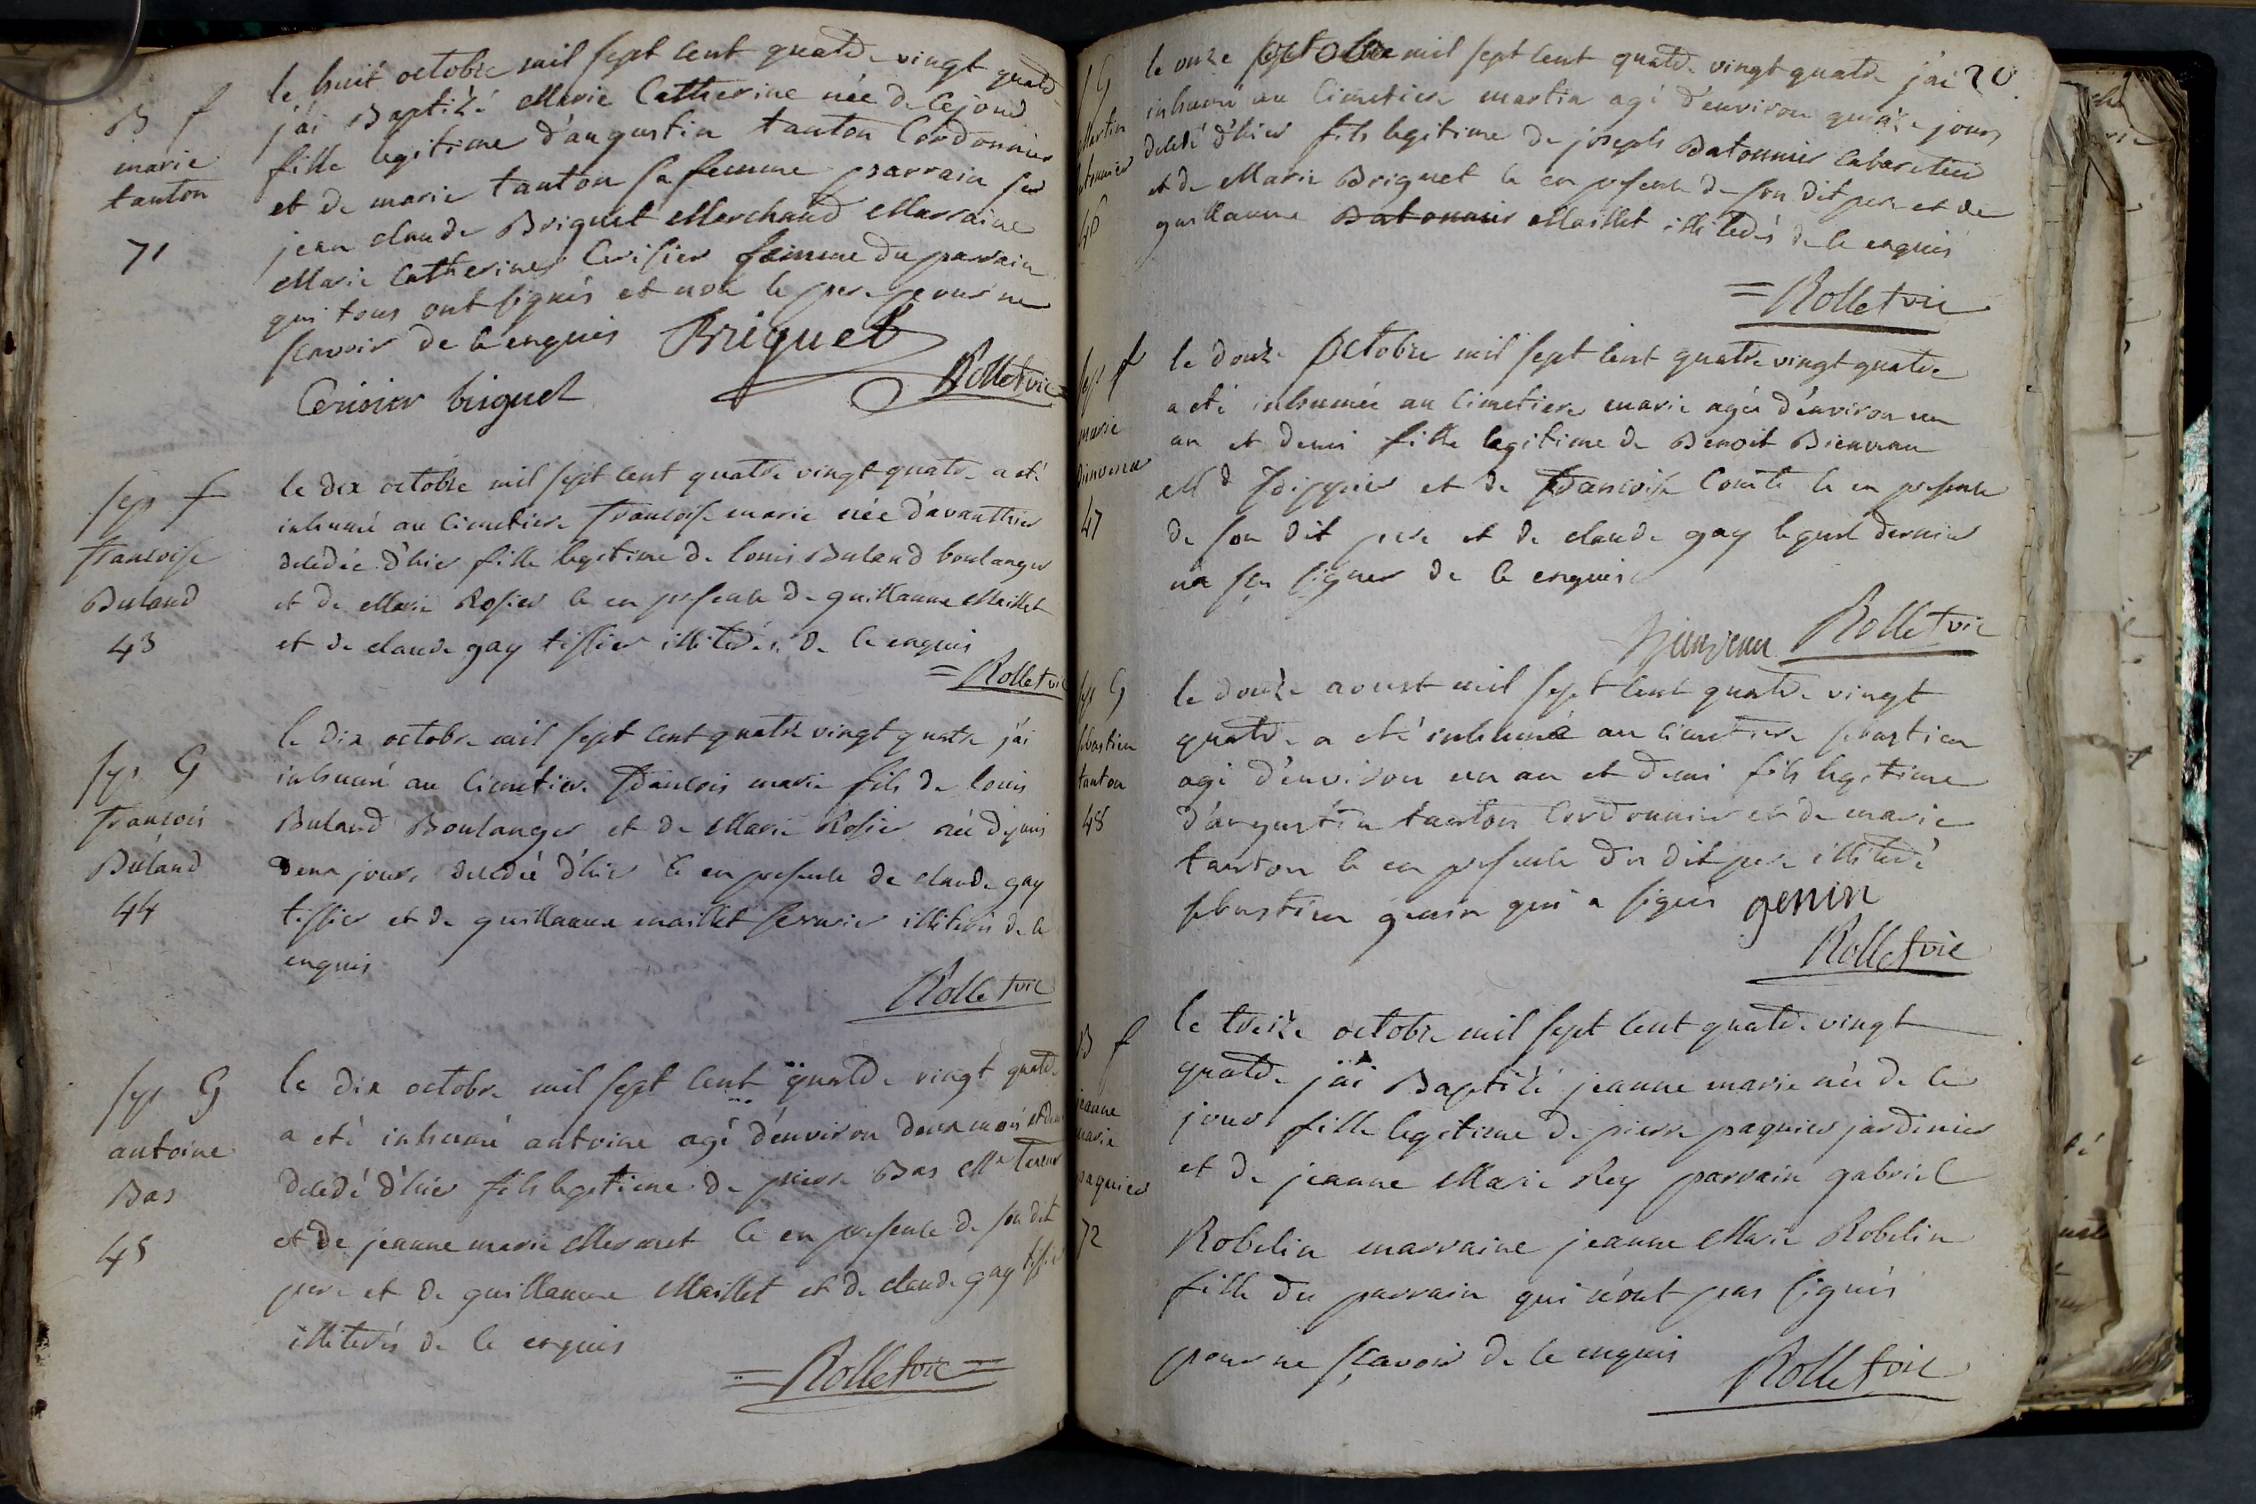 B f
marie
tanton
71
le huit octobre mil sept cent quatre vingt quatre
j'ai Baptizé Marie Catherine née de ce jour
fille legitime d'augustin tanton Cordonnier
et de marie tanton sa femme parrain sr
jean claude Briquet Marchand Marraine
Marie Catherine Cerisier femme du parrain
qui tous ont signés et non le pere pour ne
scavoir de ce enquis Briquet
Cerisier briquet Rollet vic
sep f
francoise
Buland
43
le dix octobre mil sept cent quatre vingt quatre a eté
inhumé au Cimetiere francoise marie née d'avanthier
decedée d'hier fille legitime de louis Buland boulanger
et de Marie Rosier ce en presence de guillaume Maillet
et de claude gay tissier illiterés de ce enquis
= Rollet vic
sep G
francois
Buland
44
le dix octobre mil sept cent quatre vingt quatre j'ai
inhumé au Cimetiere francois marie fils de louis
Buland Boulanger et de Marie Rosier né depuis
deux jours decedée d'hier ce en presence de claude gay
tissier et de guillaume maillet serrurier illiterés de ce
enquis
Rollet vic
sep G
antoine
Bas
45
le dix octobre mil sept cent quatre vingt quatre
a eté inhumé antoine agé d'environ deux mois et demi
decedé d'hier fils legitime de pierre Bas
et de jeanne marie Mermet ce en presence de son dit
pere et de guillaume Maillet et de claude gay tissier
illiterés de ce enquis
= Rollet vic =
20
G
Martin
46
le onze octobre mil sept cent quatre vingt quatre j'ai
inhumé au Cimetiere martin agé d'environ quinze jours
decedé d'hier fils legitime de joseph Batonnier Cabaretier
et de Marie Briquet ce en presence de son dit pere et de
guillaume Batonnier Maillet illiterés de ce enquis
= Rollet vic
sep f
marie
bienvenu
47
le douze octobre mil sept cent quatre vingt quatre
a eté inhumée au Cimetiere marie agée d'environ un
an et demi fille legitime de Benoit Bienvenu
Md frippier et de francoise Comte ce en presence
de son dit pere et de claude gay lequel dernier
na sçu signer de ce enquis
Bienvenu Rollet vic
sep G
sebastien
tanton
48
le douze aoust mil sept cent quatre vingt
quatre a eté inhumé au Cimetiere sebastien
agé d'environ un an et demi fils legitime
d'augustin tanton Cordonnier et de marie
tanton ce en presence du dit pere illiteré
sebastien genin qui a signés genin
Rollet vic
B f
jeanne
marie
paquier
72
le treize octobre mil sept cent quatre vingt
quatre j'ai Baptizé jeanne marie née de ce
jour fille legitime de pierre paquier jardinier
et de jeanne Marie Rey parrain gabriel
Robelin marraine jeanne Marie Robelin
fille du parrain qui n'ont pas signés
pour ne sçavoir de ce enquis Rollet vic